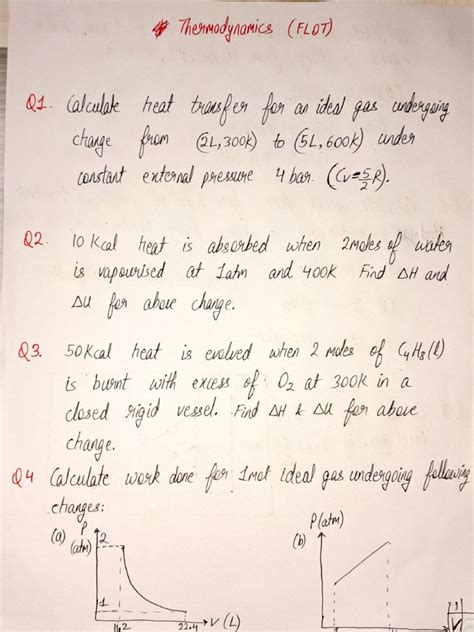 Thermodynamics (FLOT)
Q1. Calculate heat transfer for an ideal gas undergoing
change from (2L,300K) to (5L,600K) under
constant external pressure 4 bar. (Cv=5/2R).
Q2. 10 Kcal heat is absorbed when 2moles of water
is vapourised at 1atm and 400K Find ΔH and
ΔU for above change.
Q3. 50Kcal heat is evolved when 2 moles of C4H8(l)
is burnt with excess of O2 at 300K in a
closed rigid vessel. Find ΔH & ΔU for above
change.
Q4 Calculate work done for 1mol ideal gas undergoing following
changes:
(a) P (atm) 2 1 22.4 V (L)
(b) P(atm)